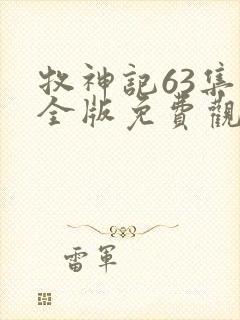 牧神記63集
全版免費觀
雷軍